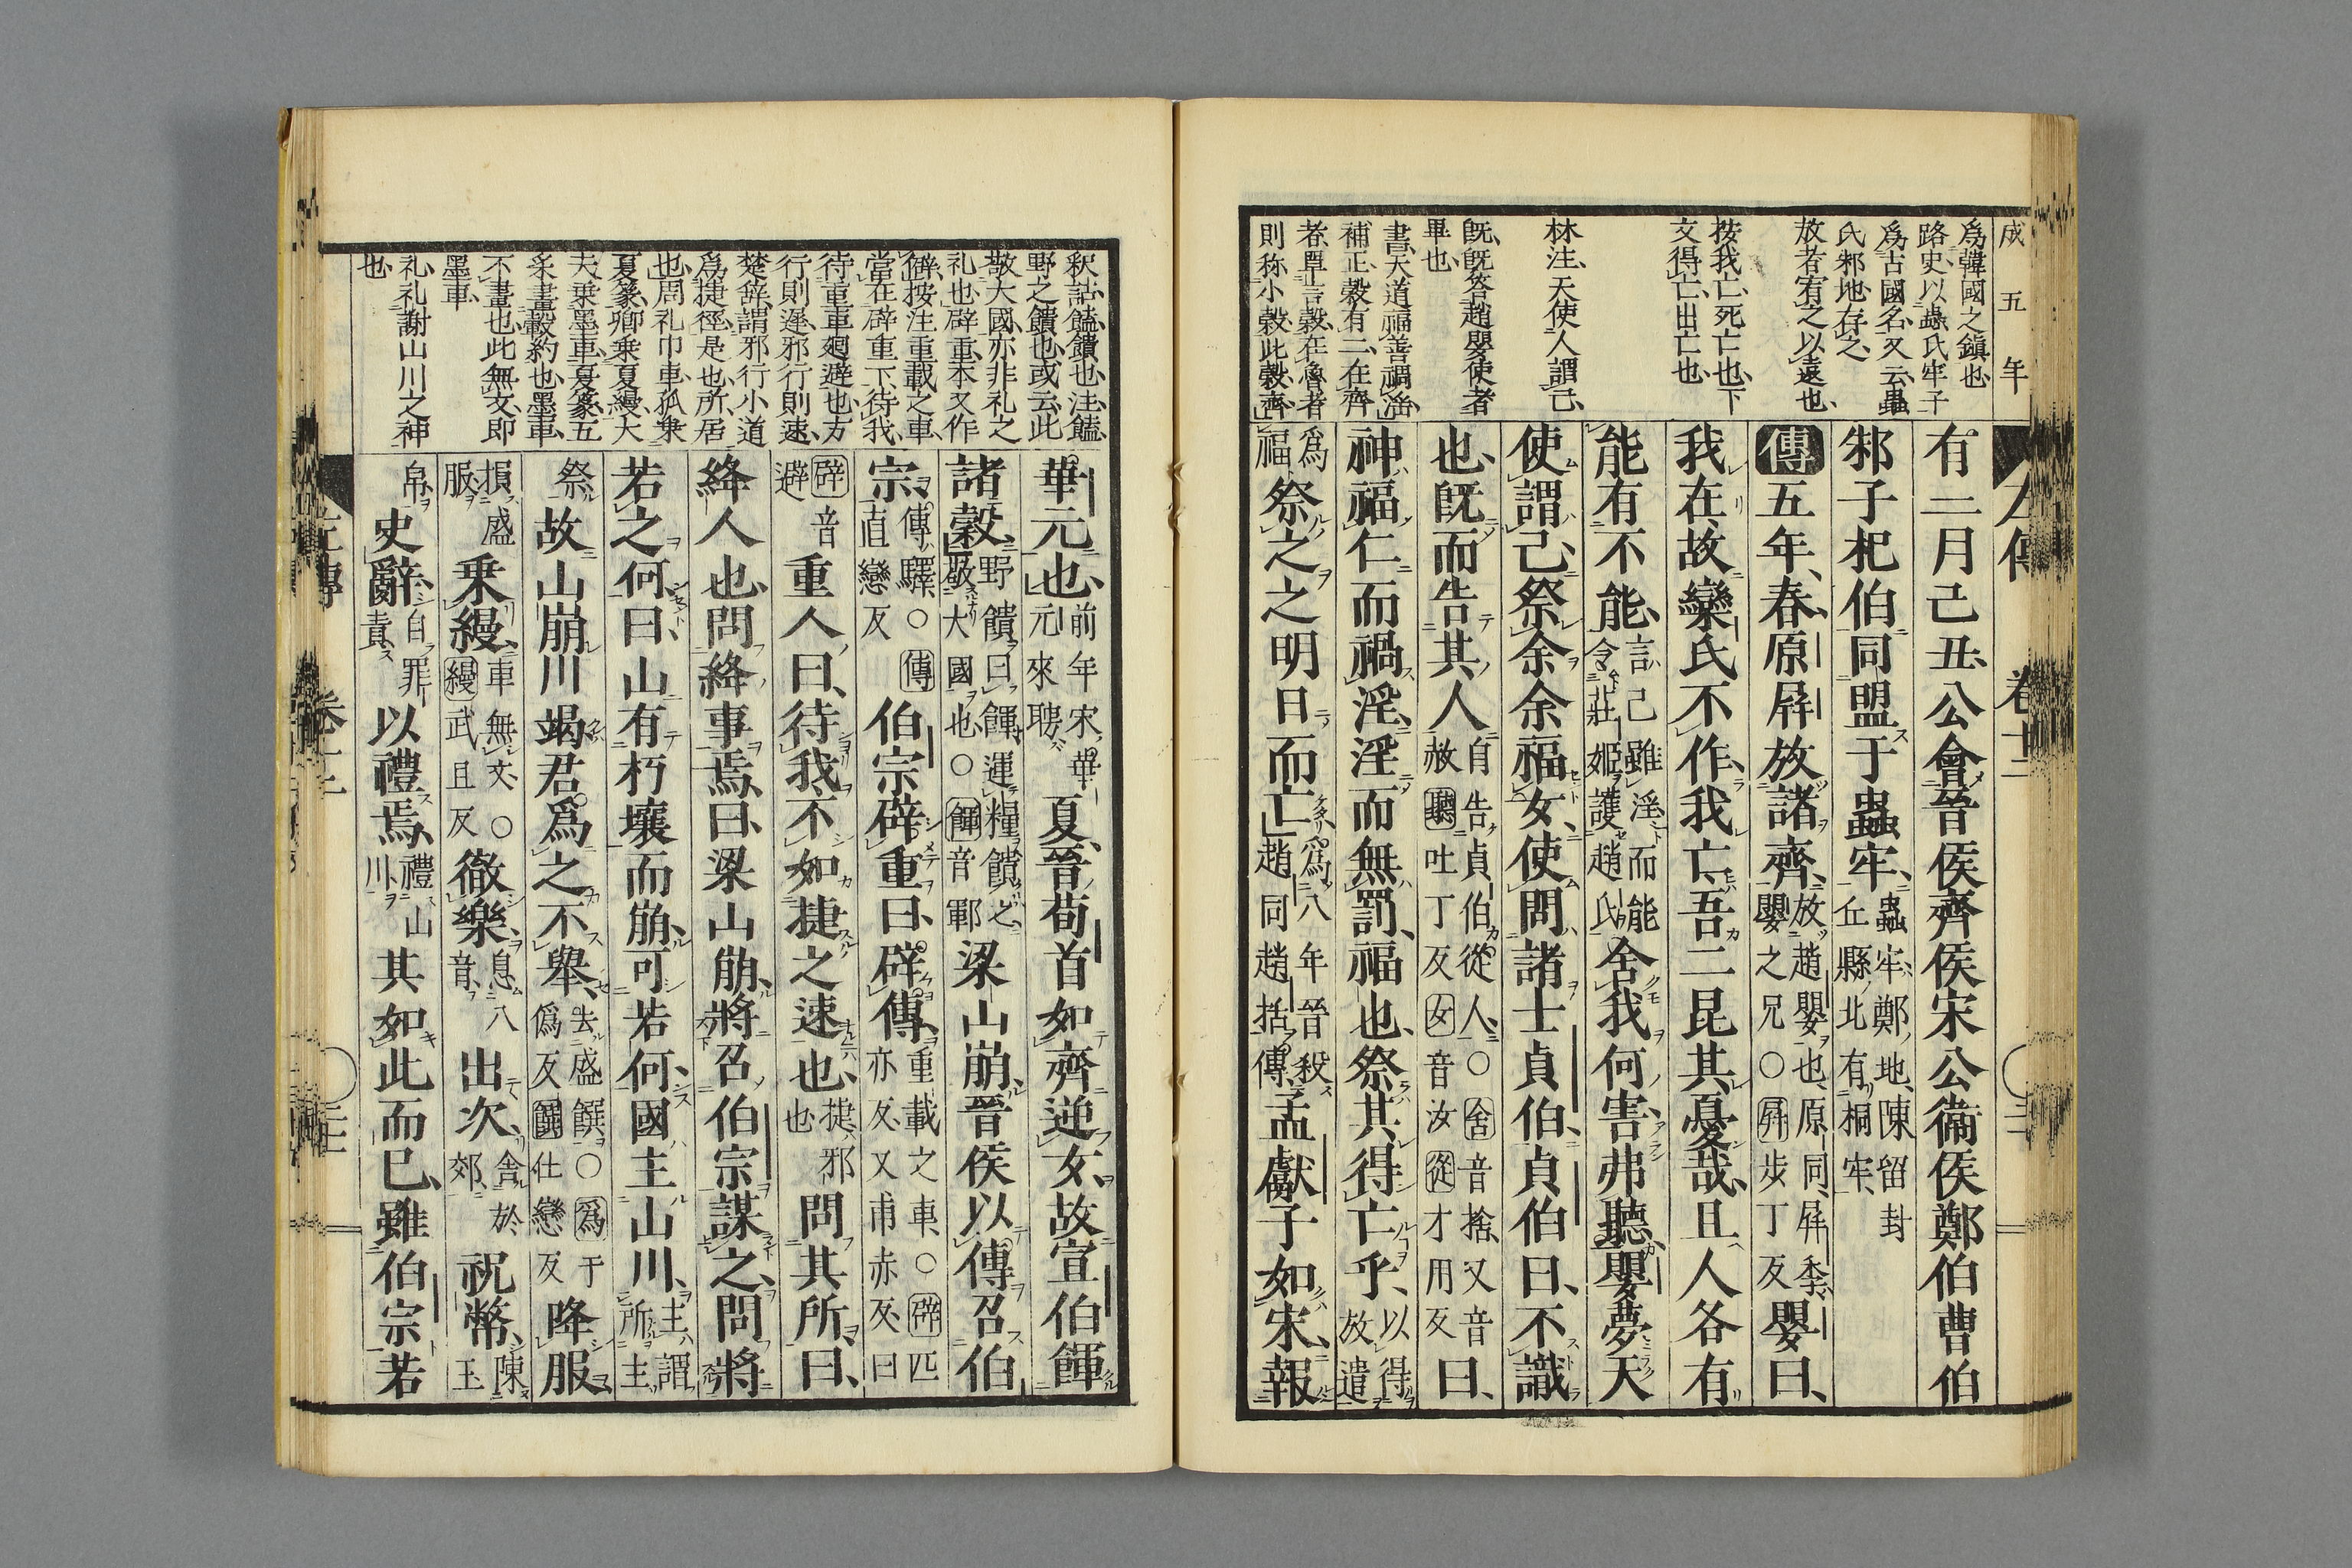 成五年
爲韓國之鎮也
路史以蟲氏牢子
爲古國名又云蟲
氏邾地存之
放者宥之以遠也
按我亡死亡也下
文得亡出亡也
林注天使人謂己
既既答趙嬰使者
畢也
書天道福善禍淫
補正穀有二在齊
者單言穀在魯者
則称小穀此穀齊
有二月己丑公會晉侯齊侯宋公衞侯鄭伯曹伯
邾子杞伯同盟于蟲牢蟲牢鄭地陳留封丘縣北有桐牢
傳五年春原屛放諸齊放趙嬰也原同屛季嬰之兄○屛步丁反嬰曰
我在故欒氏不作我亡吾二昆其憂哉且人各有
能有不能言己雖淫而能令莊姬護趙氏舍我何害弗聽嬰夢天
使謂己祭余余福女使問諸士貞伯貞伯曰不識
也旣而告其人自告貞伯從人○舍音捨又音赦聽吐丁反女音汝從才用反曰
神福仁而禍淫淫而無罰福也祭其得亡乎以得放遣
爲福祭之之明日而亡爲八年晉殺趙同趙括傳孟獻子如宋報
左傳 卷十二
釈詁饁饋也注饁
野之饋也或云此
敬大國亦非礼之
礼也辟重本又作
僻按注重載之車
當在辟重下待我
待重車廻避也方
行則遲邪行則速
楚辞謂邪行小道
爲捷徑是也所居
也周礼巾車孤乗
夏篆卿乗夏縵大
夫乗墨車夏篆五
采畫轂約也墨車
不畫也此無文即
墨車
礼礼謝山川之神
也
華元也前年宋華元來聘夏晉荀首如齊逆女故宣伯餫
諸穀野饋曰餫運糧饋之敬大國也○餫音鄆梁山崩晉侯以傳召伯
宗傳驛○傳直戀反伯宗辟重曰辟傳重載之車○辟匹亦反又甫赤反曰
辟音避重人曰待我不如捷之速也捷邪也問其所曰
絳人也問絳事焉曰梁山崩將召伯宗謀之問將
若之何曰山有朽壤而崩可若何國主山川主謂所主
祭故山崩川竭君爲之不舉去盛饌○爲于僞反饌仕戀反降服
損盛服乘縵車無文○縵武旦反徹樂息八音出次舍於郊祝幣陳玉
帛史辭自罪責以禮焉禮山川其如此而已雖伯宗若
左傳 卷十二